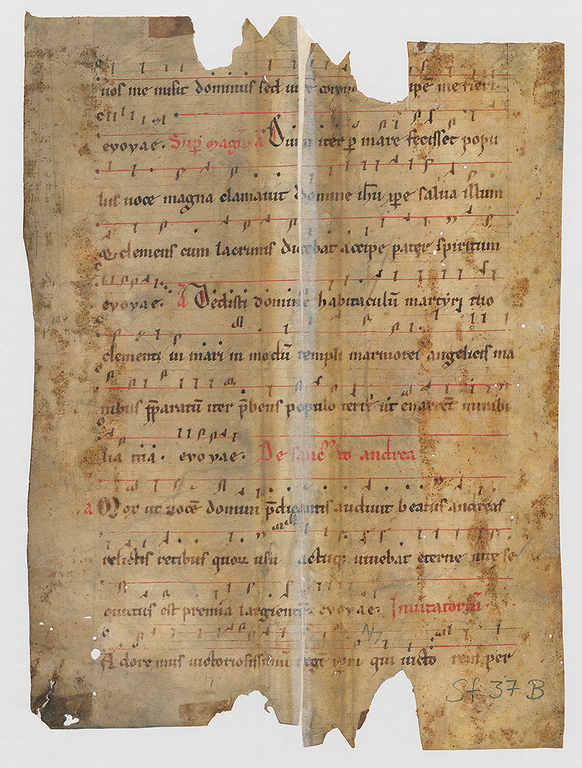 uos me misit dominus sed
euouae. Sup magn a Dum iter p mare fecisset popu
lus uoce magna clamauit domine ihu xpe salua illum
& clemens cum lacrimis dicebat accipe pater spiritum
euouae. a Dedisti domine habitaculū martyri tuo
clementi in mari in modū templi marmorei angelicis ma
nibus pparatū iter pbens populo terre ut enarret mirabi
lia tua. euouae. De sancto andrea
a Mox ut uocē domini pdicantis audiuit beatus andreas
relictis retibus quorū usu actuq; uiuebat eterne uite se
cutus est premia largientis. euouae. Inuitatoriū.
Adoremus uictoriosissimū regē xpm qui uicto per
N7
Sf 37 B